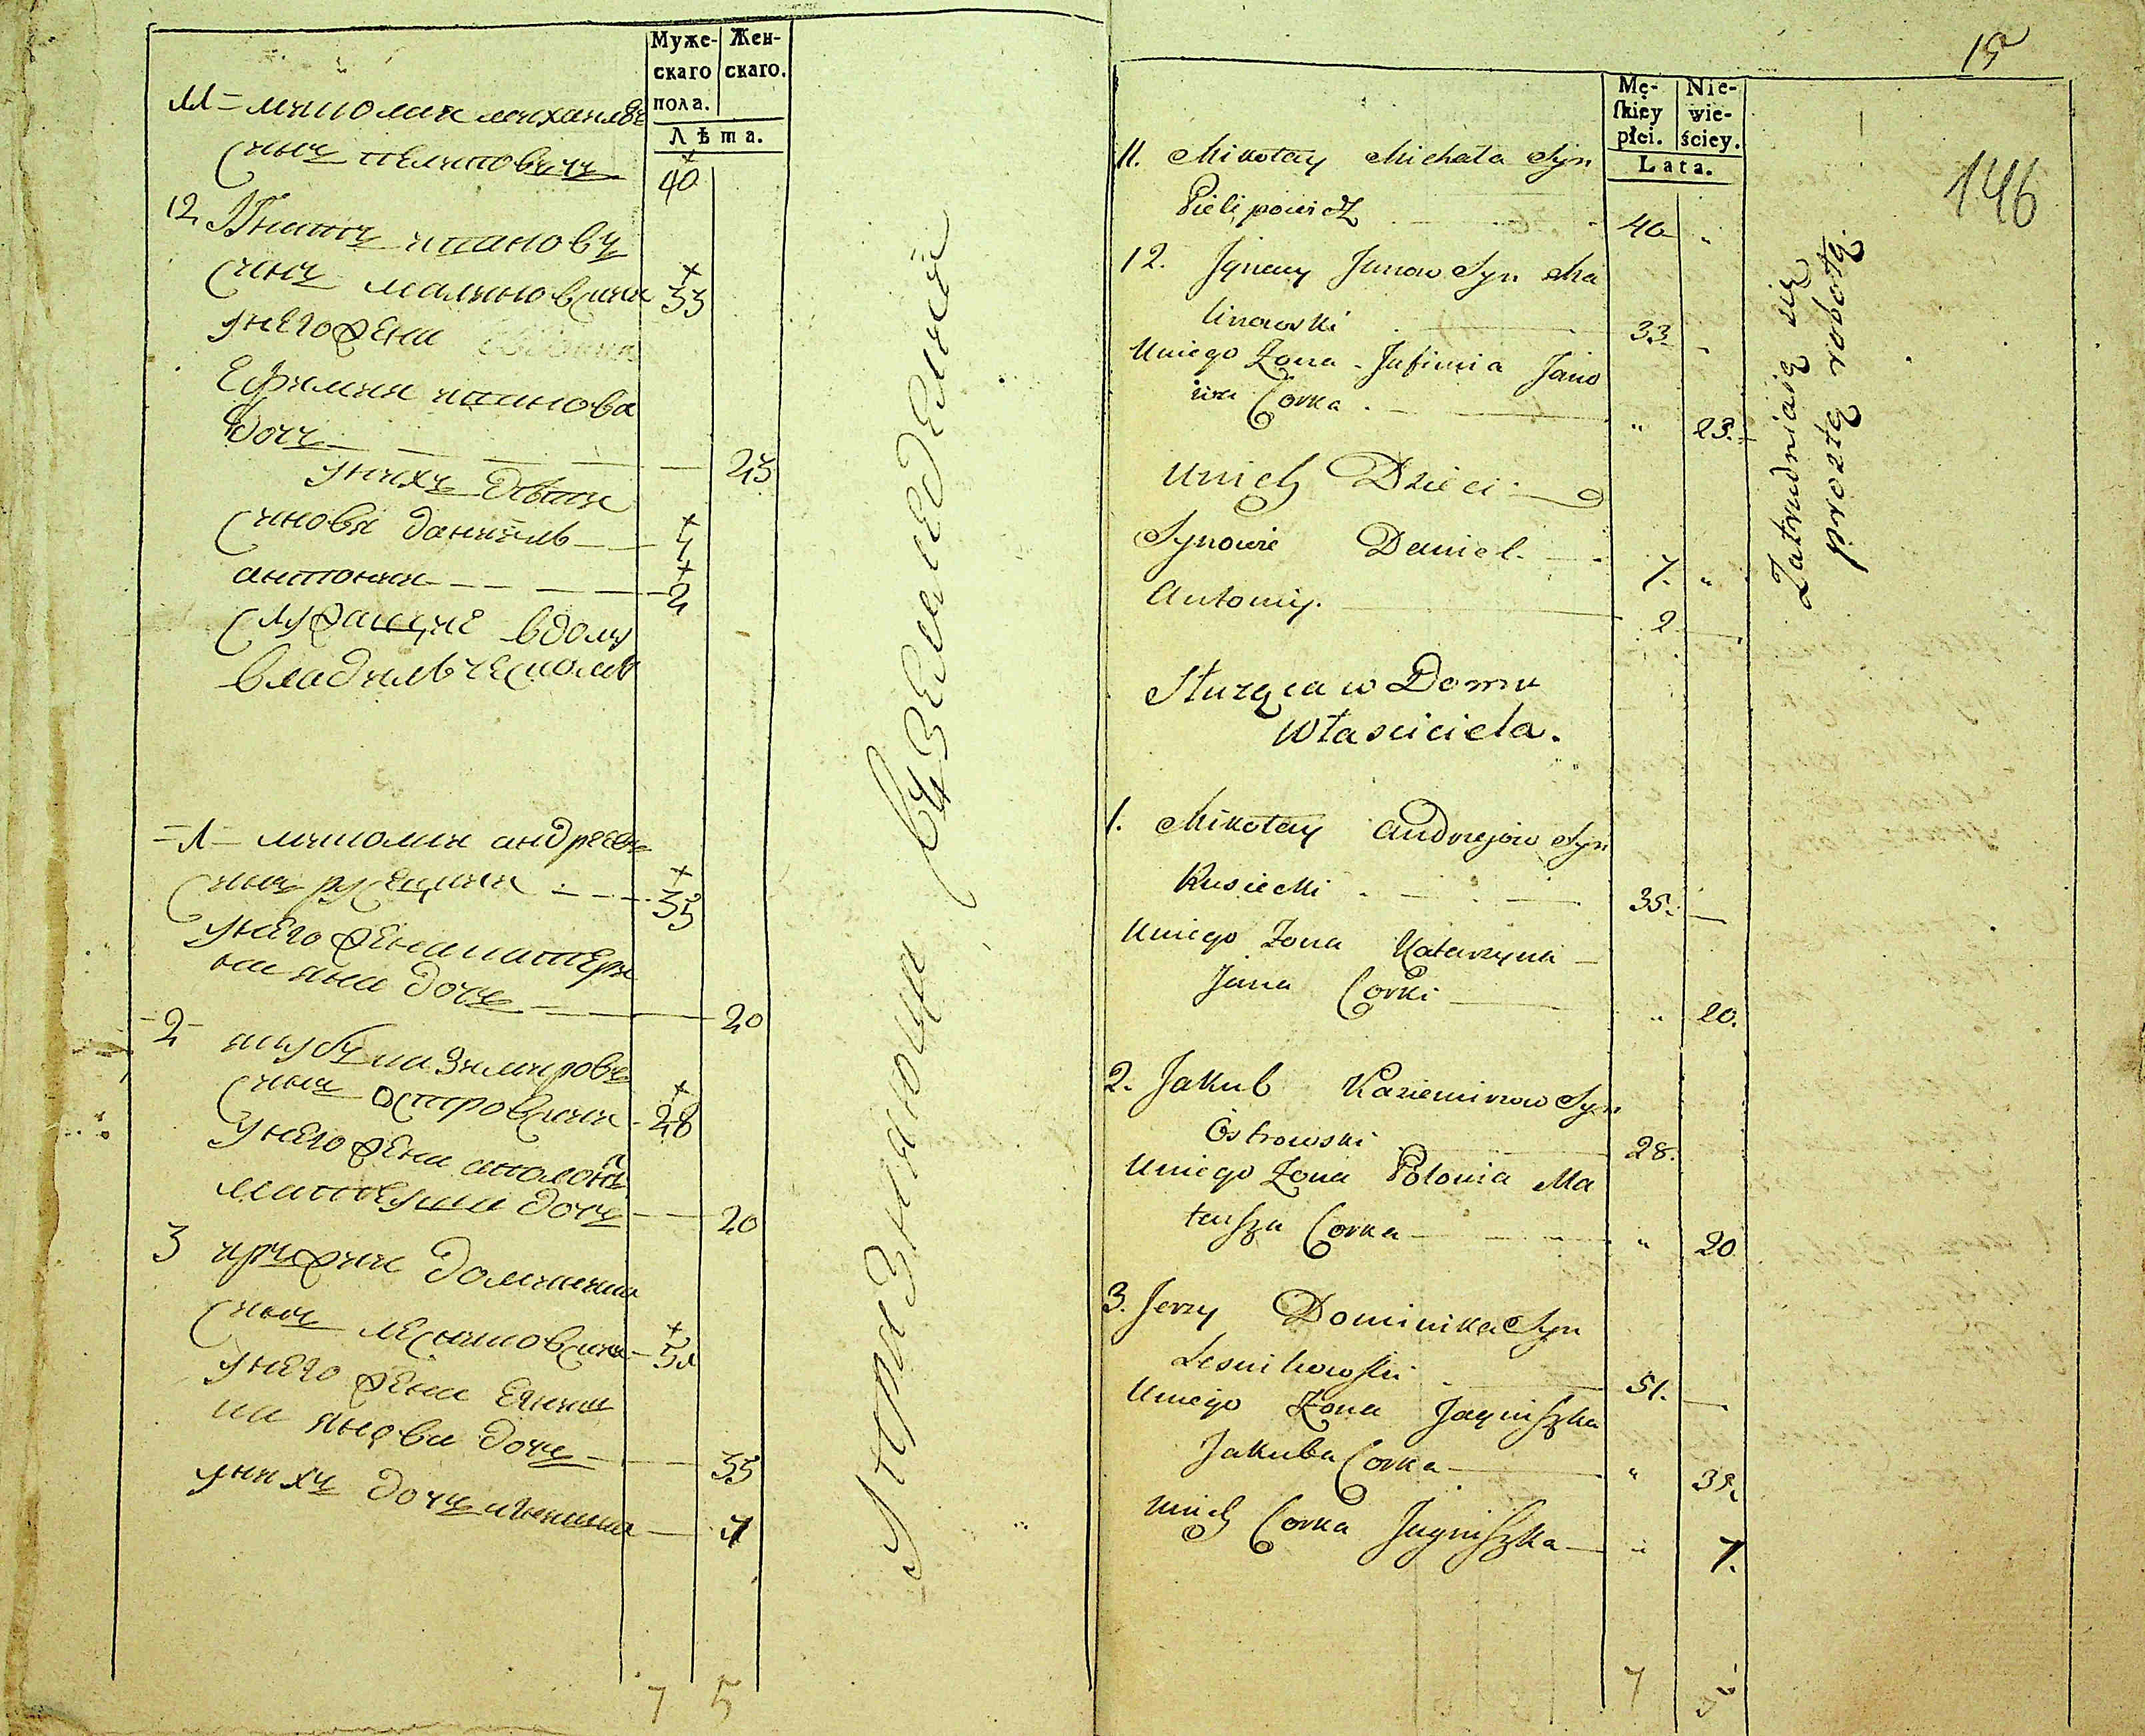 Муже-
скаго
пола.
Жен-
скаго.
Лѣта.
11 Миколай Михайлвъ
сынъ Пелиповичъ 40
12 Игнатъ Ивановъ
сынъ Малиновский 33
у него жена
Ефимия Иванова
дочъ 23
у нихъ дѣти
Синовя Даниїль 7
Антоній 2
Служащиї в дому
владѣльческомъ
1 Миколай Андреевъ
синъ Русецкий 35
у него жена Катери
на Яна дочъ 20
2 Якубъ Казимировъ
синъ Островский 28
у него жена Аполонія
Матеуша дочъ 20
3 Иржий Доминика
синъ Лесниковский 51
у него жена Ягниш
ка Якова дочъ 35
у нихъ дочъ Ягнишка 7
7 5
Упражняющи
въ Земледелиї
15
146
Mę-
skiey
płci.
Nie-
wie-
ściey.
Lata.
11. Mikołay Michała Syn
Pielipowicz 40 "
12. Jgnacy Janow Syn Ma
linowski 33. "
Uniego Żona Jufimia Jano
wa Corka " 23.
Unich Dzieci
Synowie Daniel 7. "
Antoniy. 2
Służąca w Domu
Własciciela.
1. Mikołay Andrzejow Syn
Rusiecki 35.
Uniego Żona Katarzyna
Jana Corki " 20.
2. Jakub Kaziemirow Syn
Ostrowski 28.
Uniego Żona Polonia Ma
teusza Corka " 20
3. Jerzy Dominika Syn
Lesnikowski 51.
Uniego Żona Jagniszka
Jakuba Corka " 35
Unich Corka Jagniszka " 7.
7 5
Zatrudniaią się
prostą robotą.